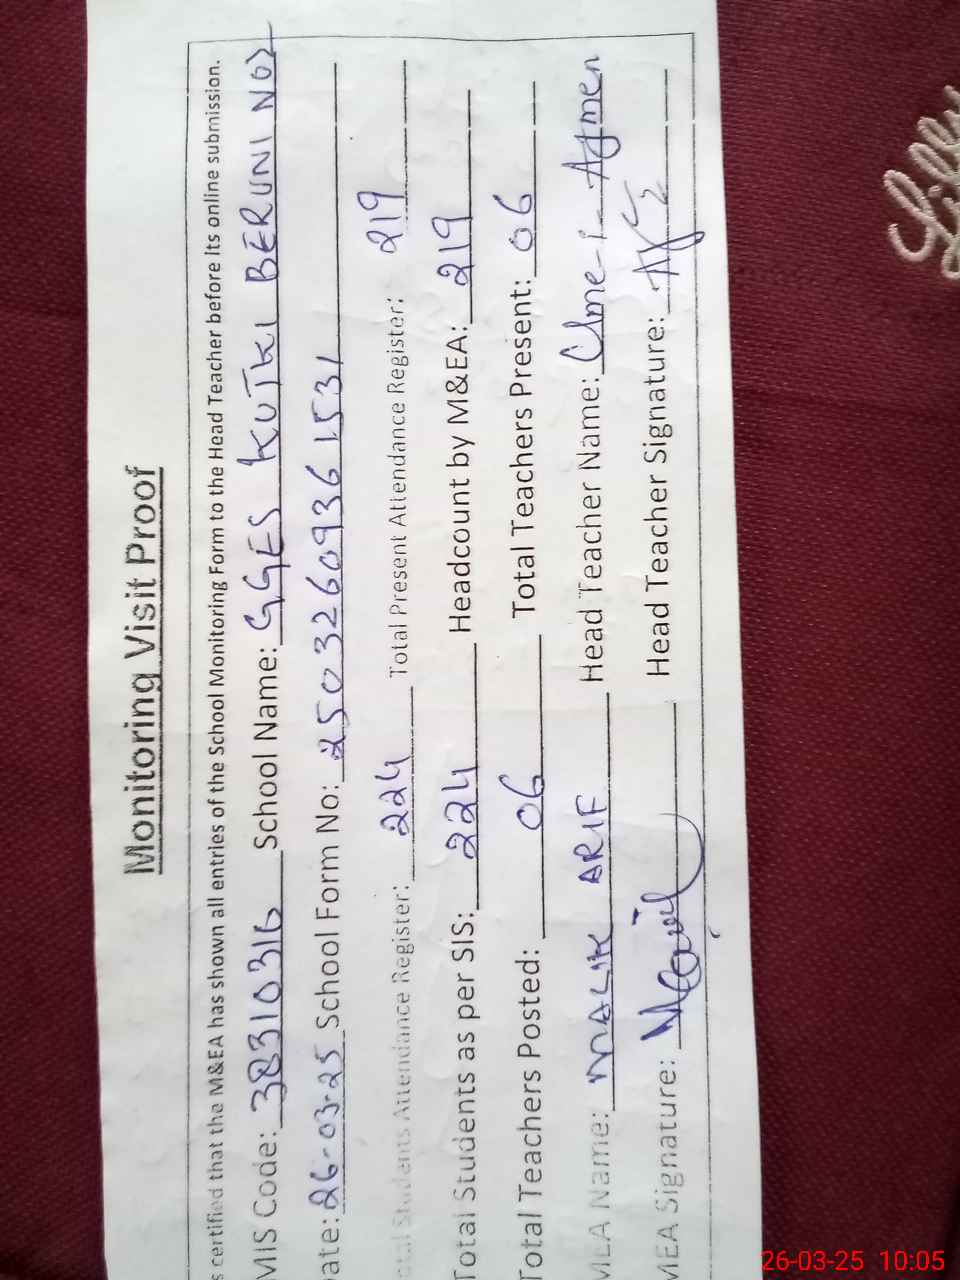 Monitoring Visit Proof
s certified that the M&EA has shown all entries of the School Monitoring Form to the Head Teacher before its online submission.
MIS Code: 38310316 School Name: GGES KUTKI BERUNI NO2
ate: 26-03-25 School Form No: 2503260936 1531
Students Attendance Register: 224 Total Present Attendance Register: 219
Total Students as per SIS: 224 Headcount by M&EA: 219
Total Teachers Posted: 06 Total Teachers Present: 06
MEA Name: MALIK ARIF Head Teacher Name:
MEA Signature: Head Teacher Signature:
Lilly
26-03-25 10:05